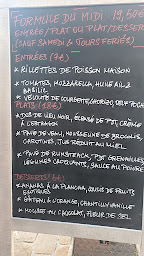 FORMULE DU MIDI 19,50€
ENTRÉE/PLAT OU PLAT/DESSERT
(SAUF SAMEDI & JOURS FERIÉS)
ENTRÉES (7€)
* RILLETTES DE POISSON MAISON
* TOMATES, MOZZARELLA, HUILE AIL &
BASILIC
* VELOUTÉ DE COURGETTE, OEUF POCHÉ
PLATS
* DOS DE LIEU NOIR, ÉCRASÉ DE PDT, CRÈME
À L'ESTRAGON
* PAVÉ DE VEAU, MOUSSELINE DE BROCOLIS,
CAROTTES, JUS RÉDUIT AU MIEL
* PAVÉ DE RUMSTEACK, PDT GRENAILLES,
LÉGUMES CROQUANTS, SAUCE AU POIVRE
DESSERTS
* ANANAS À LA PLANCHA, COULIS DE FRUITS
EXOTIQUES
* GÂTEAU À L'ORANGE, CHANTILLY VANILLE
* MOUSSE AU CHOCOLAT, FLEUR DE SEL